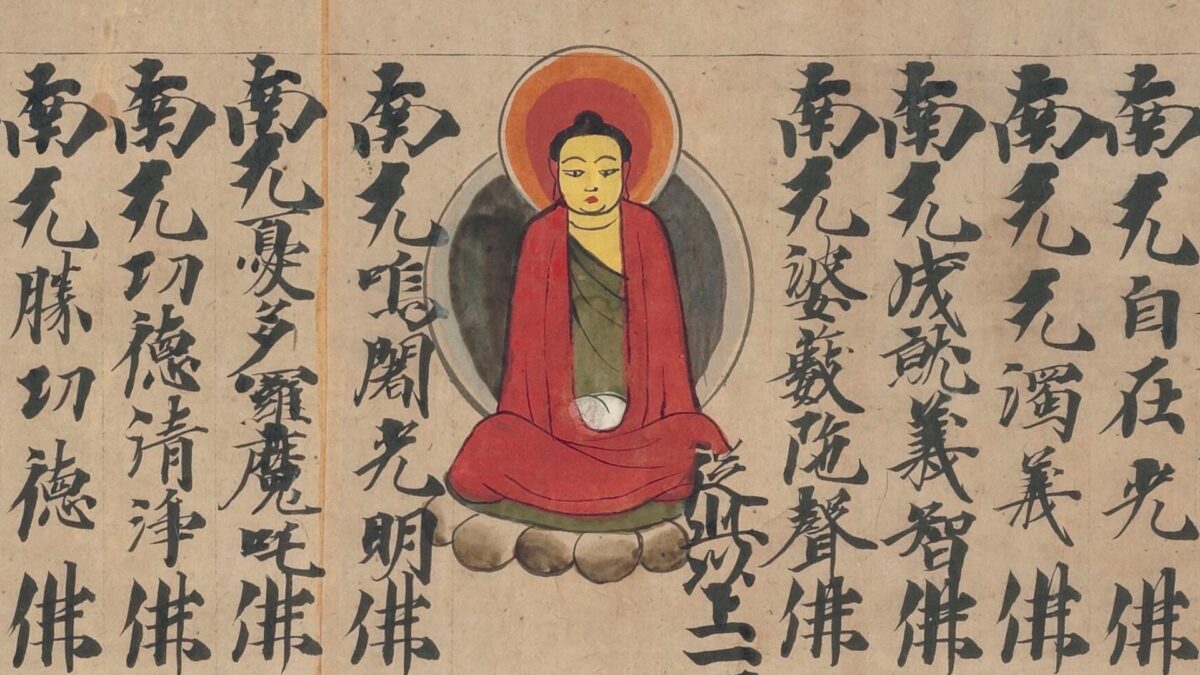 南无自在光佛
南无无濁義佛
南无成就義智佛
南无婆藪陁聲佛
從此以上
南无嗚闍光明佛
南无憂多羅魔吒佛
南无功德清淨佛
南无勝功德佛